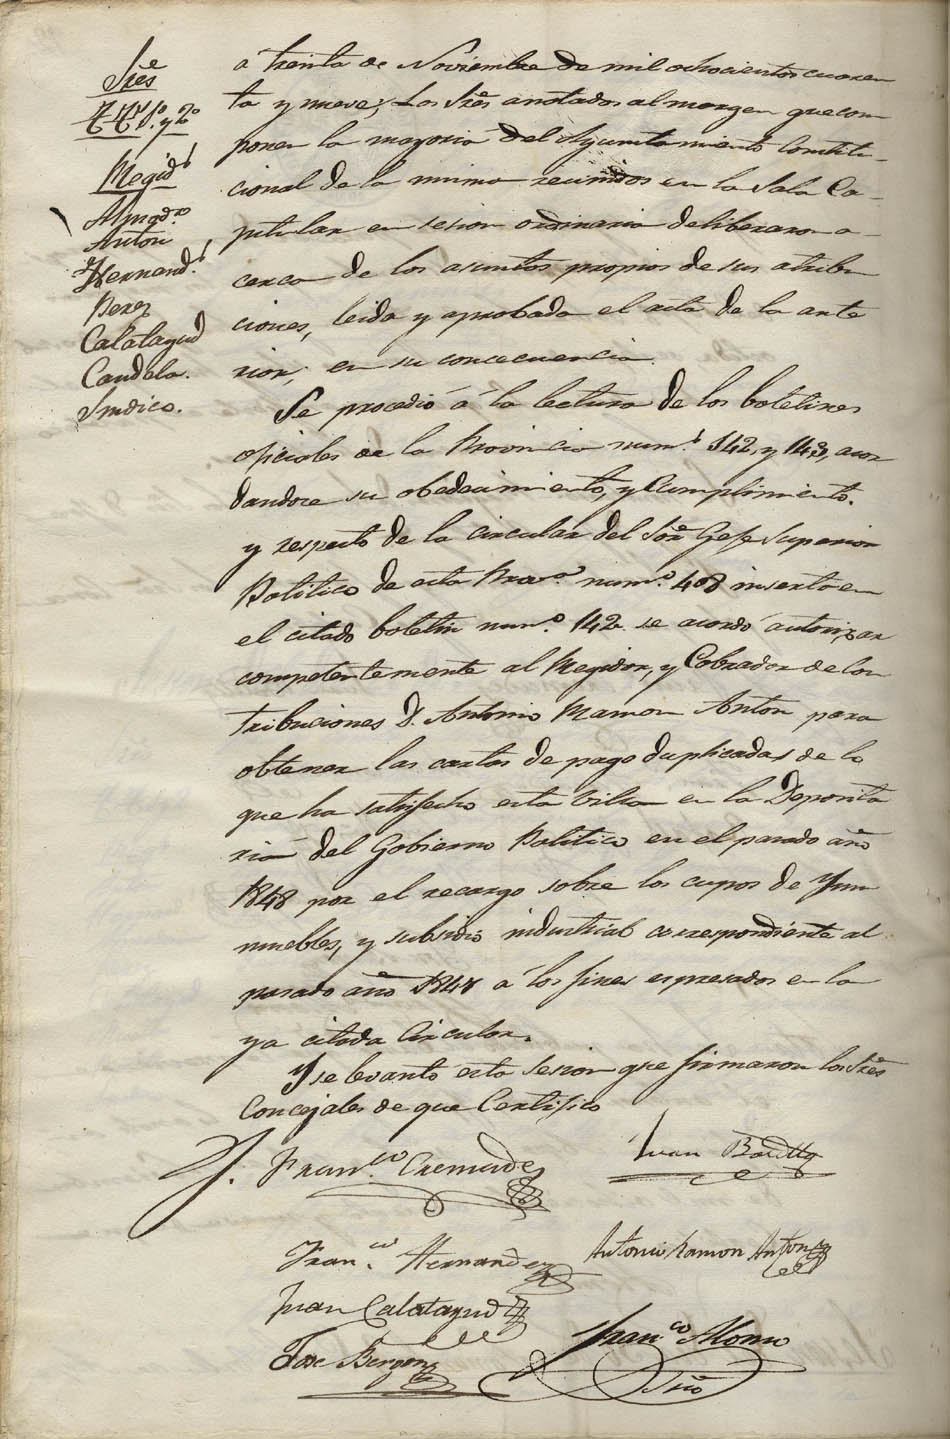 Sres
TTes 1º. y 2º
Regids
Almodr
Anton
Hernandz
Perez
Calatayud
Candela.
Sindico.
á treinta de Noviembre de mil ochocientos cuaren
ta y nueve; Los Sres anotados al margen que com
ponen la mayoria del Ayuntamiento Constitu-
cional de la misma reunidos en la Sala Ca-
pitular en sesion ordinaria deliberaron a-
cerca de los asuntos propios de sus atribu
ciones, leida y aprobada el acta de la ante
rior, en su concecuencia.
Se procedió á la lectura de los boletines
oficiales de la Provincia nums. 142, y 143, acor
dandose su obedecimiento, y Cumplimiento.
y respecto de la circular del Sor Gefe Superior
Politico de esta Prova numo. 408 inserto en
el citado boletin numo. 142 se acordó autorizar
competentemente al Regidor, y Cobrador de Con
tribuciones D. Antonio Ramon Anton para
obtener las cartas de pago duplicadas de lo
que ha satisfecho esta Villa en la Deposita
ria del Gobierno Politico en el pasado año
1848 por el recargo sobre los cupos de Ynm
muebles, y subsidio industrial correspondiente al
pasado año 1848 á los fines espresados en la
ya citada Circular.
Y se levantó esta sesion que firmaron los Sres
Concejales de que Certifico
Franco. Cremades
Juan
Franco. Hernandez
Antonio Ramon Anton
Juan Calatayud
Jose
Franco Alonso
Srio